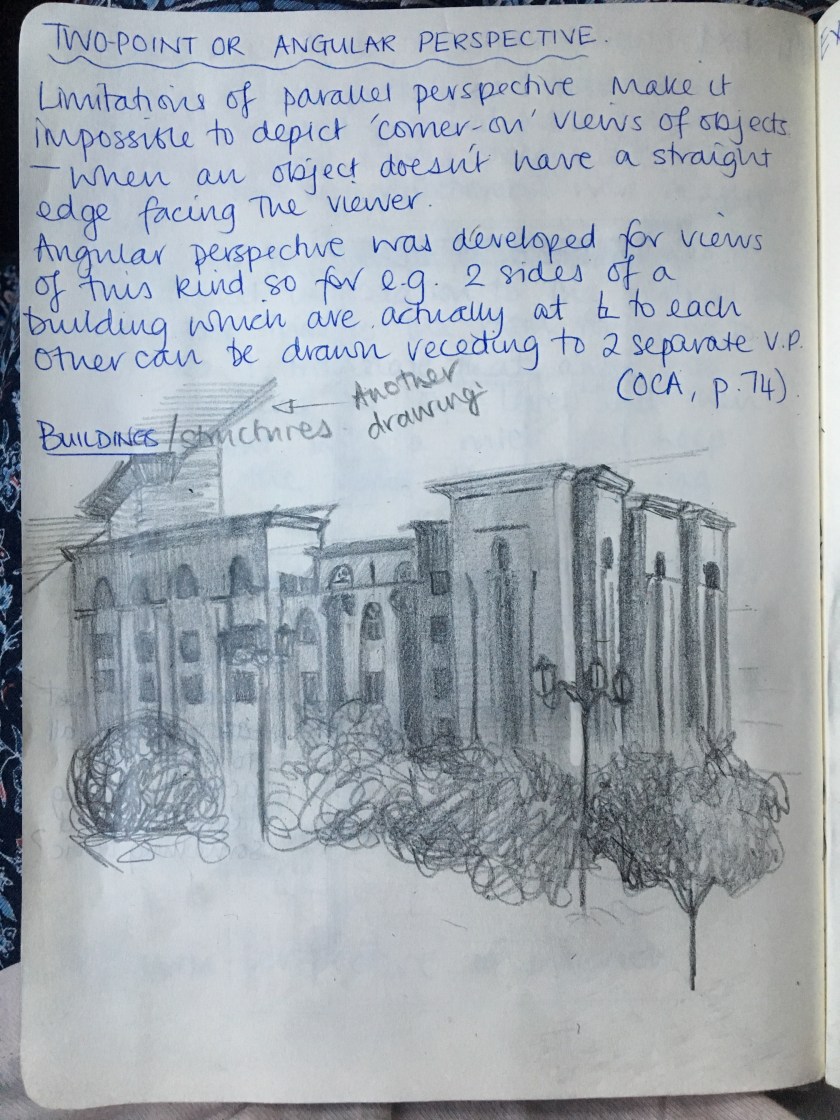 TWO-POINT OR ANGULAR PERSPECTIVE.
Limitations of parallel perspective make it
impossible to depict 'corner-on' views of objects
– when an object doesn't have a straight
edge facing the viewer.
Angular perspective was developed for views
of this kind so for e.g. 2 sides of a
building which are actually at ∟ to each
other can be drawn receding to 2 separate V.P.
(OCA, p.74).
Another
drawing
BUILDINGS/structures